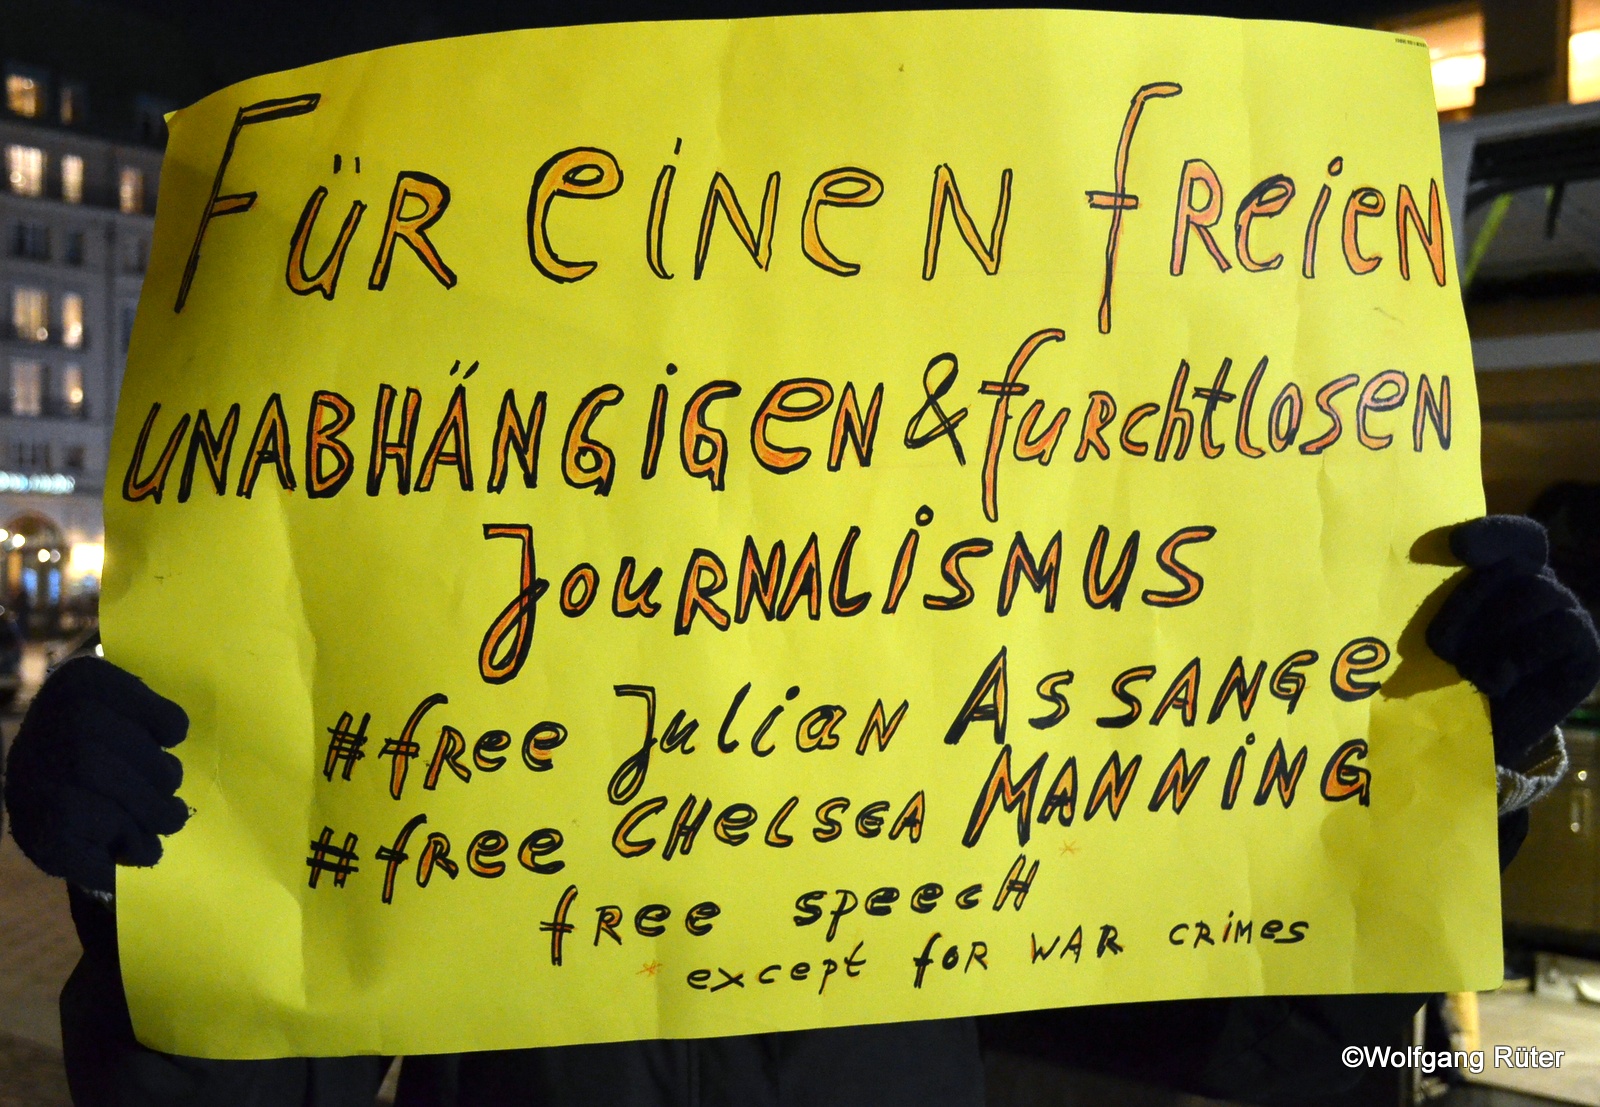 Für einen freien
unabhängigen & furchtlosen
Journalismus
#free Julian Assange
#free Chelsea Manning
free speech*
* except for war crimes
©Wolfgang Rüter